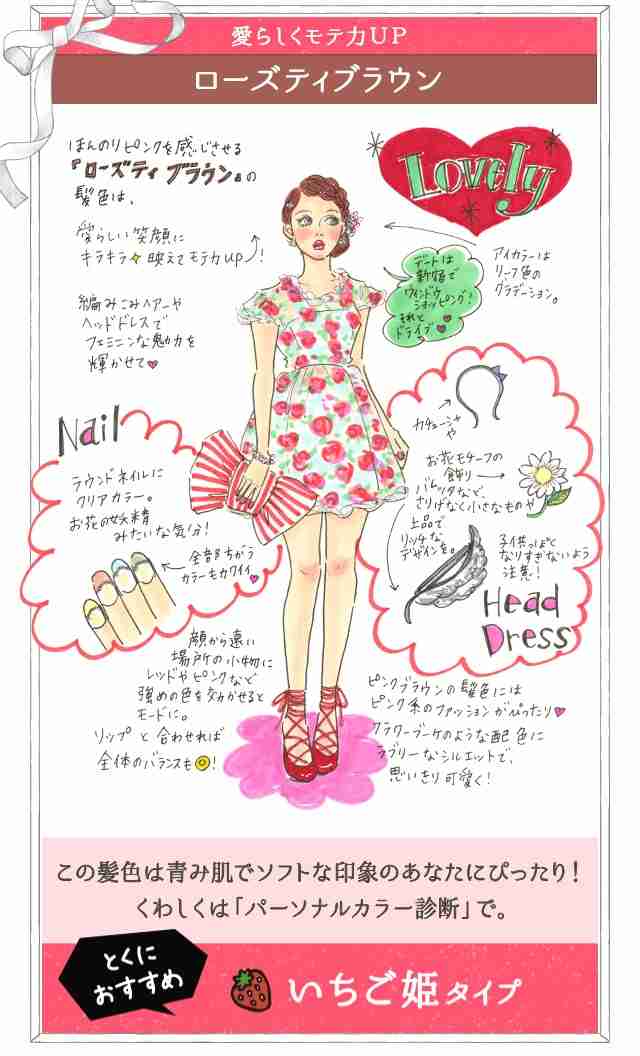 愛らしくモテ力UP
ローズティブラウン
ほんのりピンクを感じさせる
『ローズティブラウン』の
髪色は、
愛らしい笑顔に
キラキラ映えてモテ力up!
編みこみヘアーや
ヘッドドレスで
フェミニンな魅力を
輝かせて♥
Lovely
アイカラーは
リーフ色の
グラデーション。
デートは
新宿で
ウィンドウ
ショッピング!
それと
ドライブ♥
Nail
ラウンドネイルに
クリアカラー。
お花の妖精
みたいな気分!
全部ちがう
カラーもカワイイ♥
カチューシャ
や
お花モチーフの
飾り
バレッタなど、
さりげなく小さなものや
上品で
リッチな
デザインを。
子供っぽく
なりすぎないよう
注意!
Head
Dress
顔から遠い
場所の小物に
レッドやピンクなど
強めの色を効かせると
モードに。
リップと合わせれば
全体のバランスも◎!
ピンクブラウンの髪色には
ピンク系のファッションがぴったり♥
フラワーブーケのような配色に
ラブリーなシルエットで、
思いきり可愛く!
この髪色は青み肌でソフトな印象のあなたにぴったり!
くわしくは「パーソナルカラー診断」で。
とくに
おすすめ
いちご姫タイプ